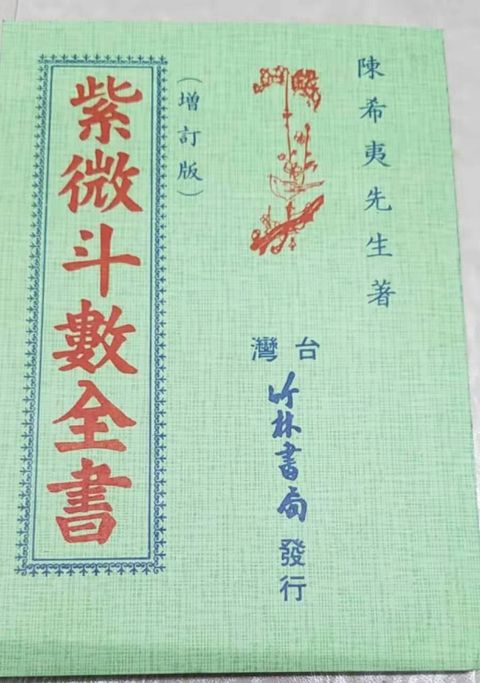 陳希夷先生著
台灣
竹林書局
發行
(增訂版)
紫微斗數全書